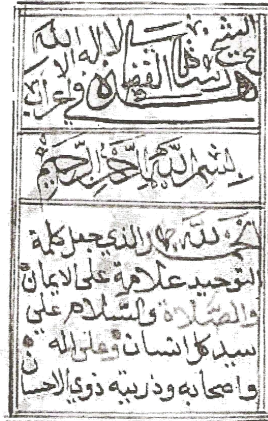 لا اله الا الله
بسم الله الرحمن الرحيم
الحمد لله الذي جعل كلمة
التوحيد علامة على الايمان
والصلاة والسلام على
سيد كل انسان وعلى اله
واصحابه وذريته ذوي الاحسان